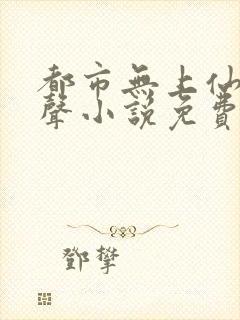 都市無上仙
聲小說免費
鄧攀